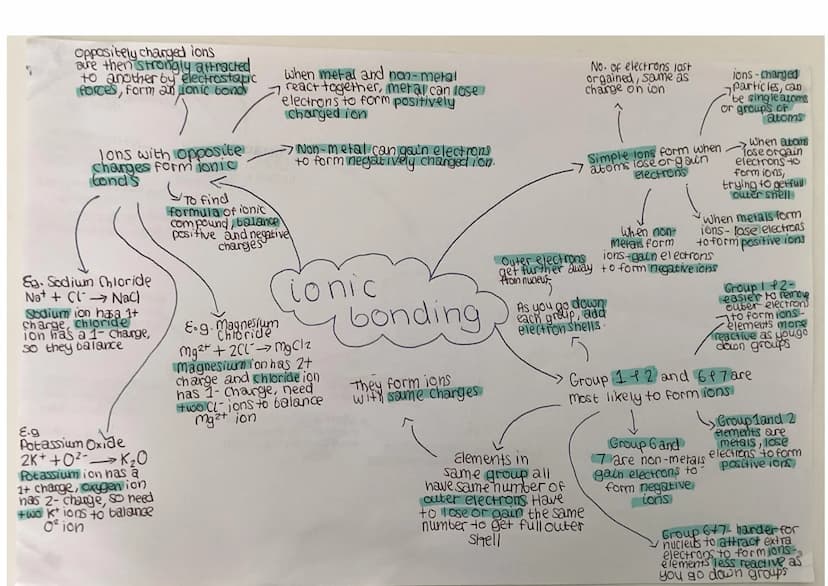 Oppositely charged ions
are then strongly attracted
to another by electrostatic
forces, form an ionic bond
When metal and non-metal
react together, metal can lose
electrons to form positively
charged ion
Ions with opposite
charges form ionic
bonds
Non-metal can gain electrons
to form negatively charged ion.
To find
formula of ionic
compound, balance
positive and negative
charges
Eg. Sodium Chloride
Na⁺ + Cl⁻ → NaCl
Sodium ion has a 1+
charge, chloride
ion has a 1- charge,
so they balance
E.g. Magnesium
Chloride
Mg²⁺ + 2Cl⁻ → MgCl₂
Magnesium ion has 2+
charge and chloride ion
has 1- charge, need
two Cl⁻ ions to balance
Mg²⁺ ion
E.g
Potassium Oxide
2K⁺ + O²⁻ → K₂O
Potassium ion has a
1+ charge, oxygen ion
has 2- charge, so need
two K⁺ ions to balance
O² ion
ionic
bonding
No. of electrons lost
or gained, same as
charge on ion
ions - charged
particles, can
be single atoms
or groups of
atoms
Simple ions form when
atoms lose or gain
electrons
When atoms
lose or gain
electrons to
form ions,
trying to get full
outer shell
When non-
metals form
ions - gain electrons
to form negative ions
When metals form
ions - lose electrons
to form positive ions
Outer electrons
get further away
from nucleus
As you go down
each group, add
electron shells.
Group 1+2 -
easier to remove
outer electrons
to form ions -
elements more
reactive as you go
down groups
Group 1+2 and 6+7 are
most likely to form ions
They form ions
with same charges
Elements in
same group all
have same number of
outer electrons. Have
to lose or gain the same
number to get full outer
shell
Group 6 and
7 are non-metals
gain electrons to
form negative
ions
Group 1 and 2
elements are
metals, lose
electrons to form
positive ions
Group 6+7 - harder for
nucleus to attract extra
electrons to form ions -
elements less reactive as
you go down groups